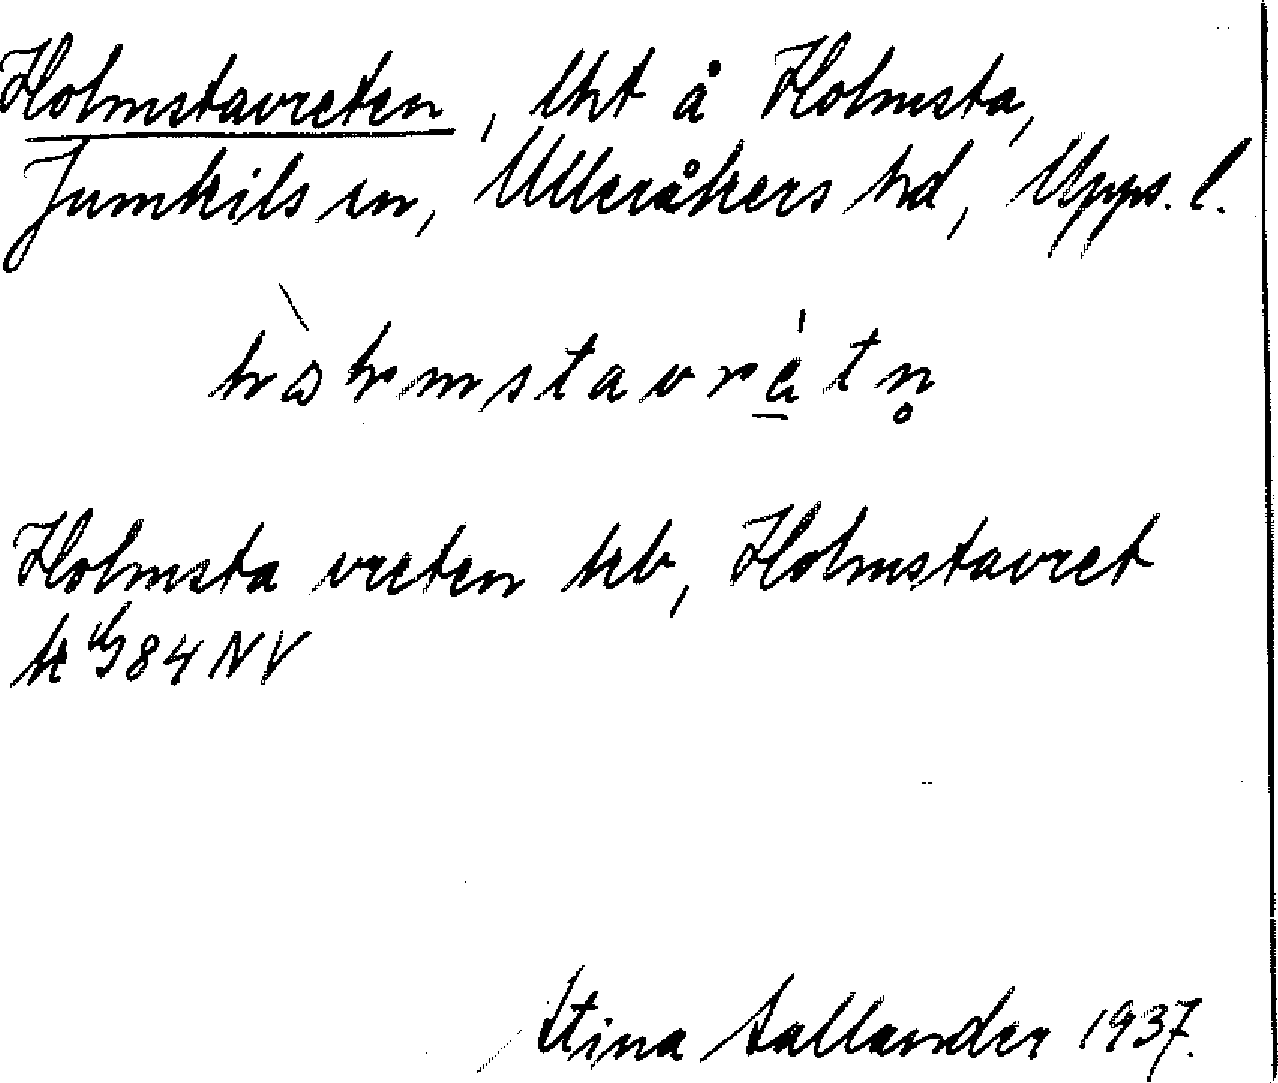 Holmstavreten, lht å Holmsta,
Jumkils sn, Ulleråkers hd, Upps. l.
Holmsta vreten hb, Holmstavret
k G 84 NV
Stina Sallander 1937.